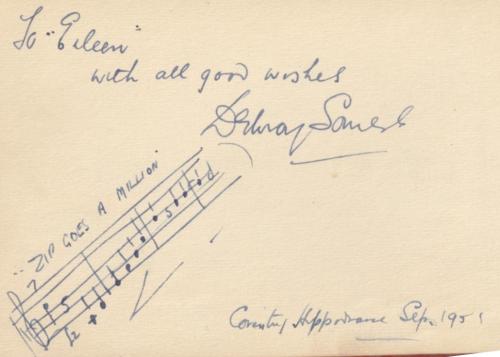 To "Eileen"
with all good wishes
"ZIP GOES A MILLION"
Coventry Hippodrome Sep. 1951